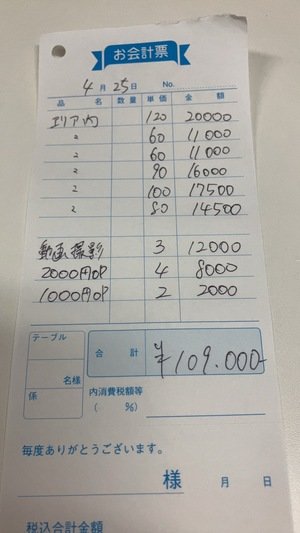 お会計票
4月25日 No.
品 名 数量 単価 金 額
エリア内 120 20000
〃 60 11000
〃 60 11000
〃 90 16000
〃 100 17500
〃 80 14500
動画撮影 3 12000
2000円OP 4 8000
1000円OP 2 2000
テーブル
名様
係
合 計 ¥109.000
内消費税額等
( %)
毎度ありがとうございます。
様 月 日
税込合計金額